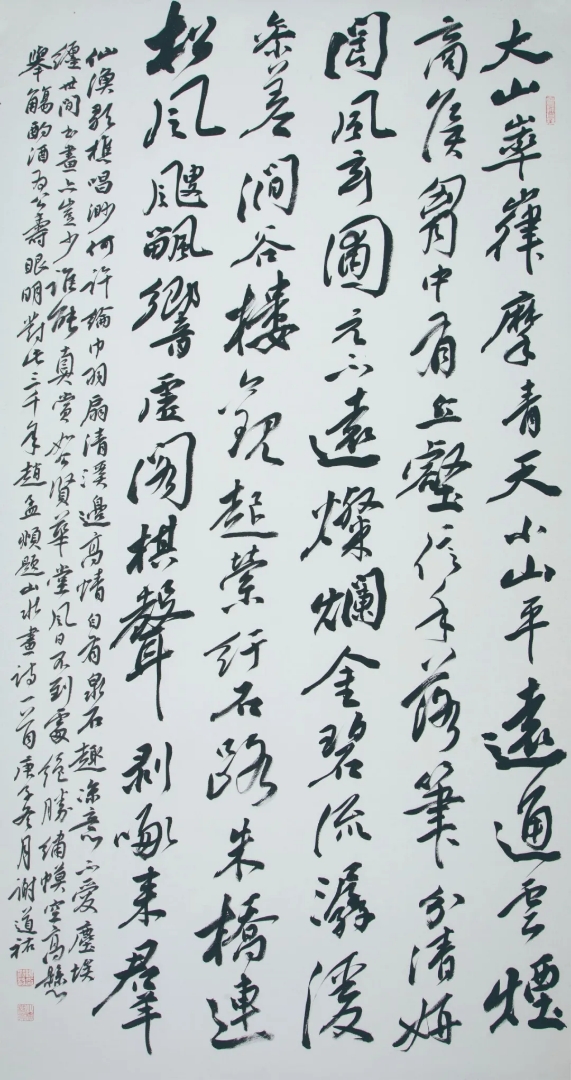 大山崒嵂摩青天小山平遠通云煙
商侯胷中有丘壑信手落筆分清妍
閬風玄圃元不遠燦爛金碧流潺湲
參差澗谷樓觀起縈紆石路朱橋連
松風颼飀響虛閣棋聲剥啄来羣
仙漁歌樵唱渺何許綸巾羽扇清溪邊高情自有泉石趣深意不受塵埃
纏世間書畫亦豈少誰能真賞如公賢華堂風日不到處絕勝繡幙空高懸
舉觴酌酒為公壽眼明對此三千年趙孟頫題山水畫詩一首庚子冬月謝道祐